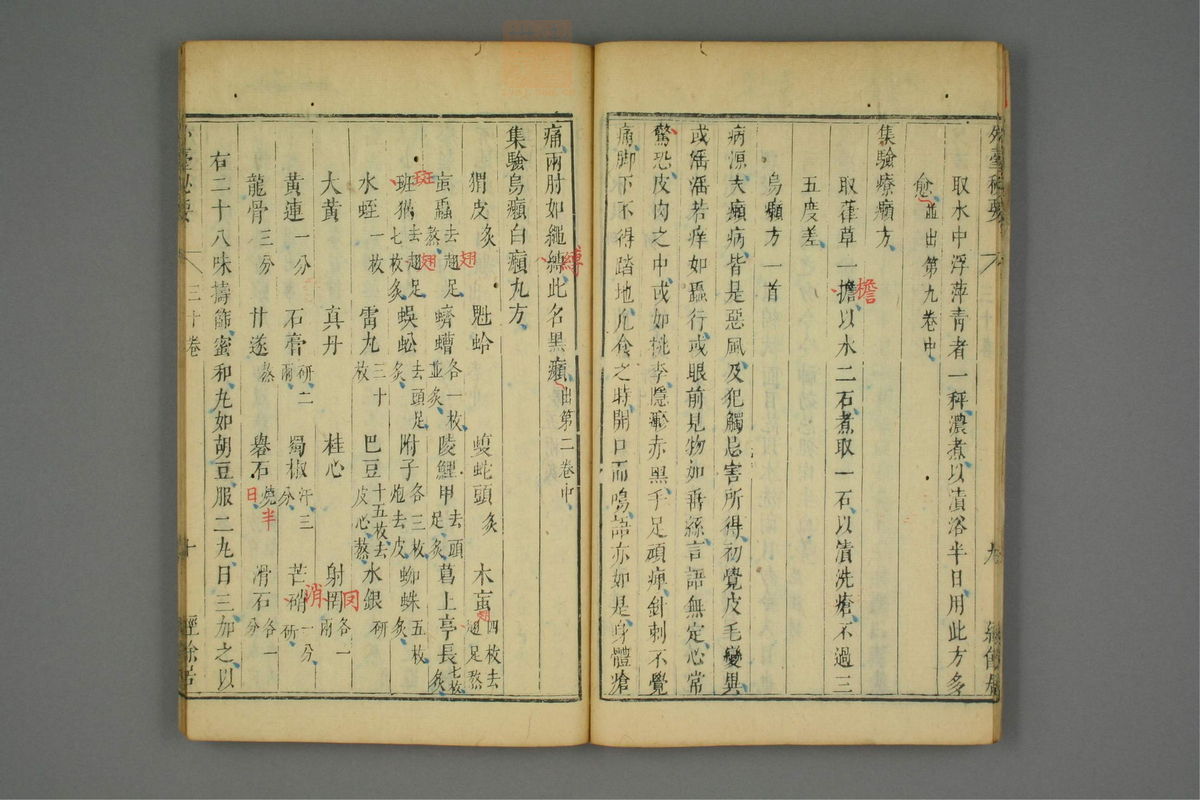 取水中浮萍青者一秤濃煮以漬浴半日用此方多
愈並出第九卷中
集驗療癩方
取葎草一擔以水二石煮取一石以漬洗瘡不過三
五度差
烏癩方一首
病源夫癩病皆是惡風及犯觸忌害所得初覺皮毛變異
或淫淫若痒如蟲行或眼前見物如垂絲言語無定心常
驚恐皮肉之中或如桃李隱㾦赤黑手足頑痺針刺不覺
痛脚下不得踏地凡食之時開口而鳴語亦如是身體瘡
九
痛兩肘如繩縛此名黑癩出第二卷中
集驗烏癩白癩丸方
猬皮炙 魁蛤 蝮蛇頭炙 木蝱四枚去翅足熬
蝱蟲去翅足熬 蠐螬各一枚並炙 陵鯉甲去頭足炙 葛上亭長七枚炙
斑猫去翅足七枚炙 蜈蚣去頭足炙 附子各三枚炮去皮 蜘蛛五枚炙
水蛭一枚 雷丸三十枚 巴豆十五枚去皮心熬 水銀研
大黃 真丹 桂心 射罔各一兩
黃連一分 石膏研二兩 蜀椒汗三分 芒硝研一分
龍骨三分 甘遂熬 礜石燒半日 滑石各一分
右二十八味擣篩蜜和丸如胡豆服二丸日三加之以
三十卷
十
經餘居